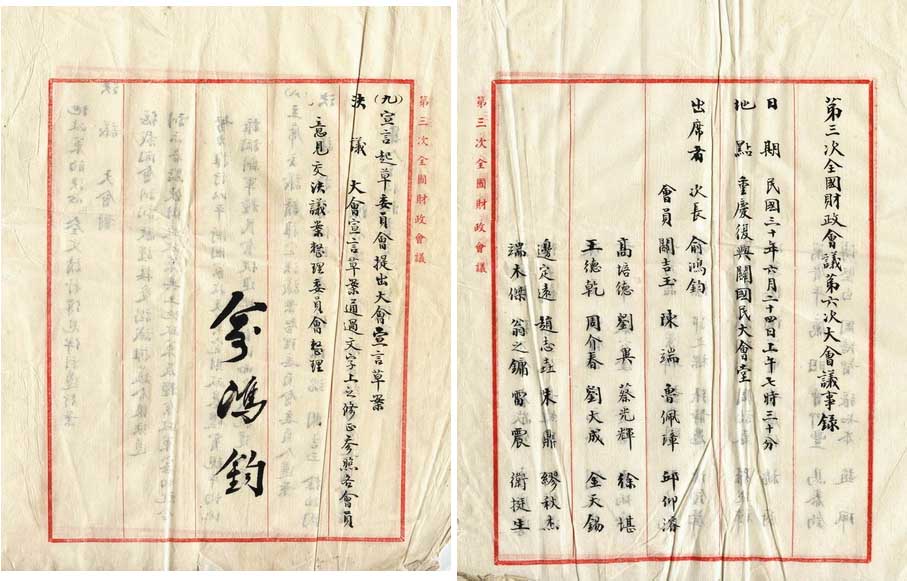 第三次全國財政會議第六次大會議事錄
日期 民國三十年六月二十四日上午七時三十分
地點 重慶復興關國民大會堂
出席者 次長 俞鴻鈞
會員 關吉玉 陳端 魯佩璋 邱仰濬
高培德 劉巽 蔡光輝 徐堪
王德乾 周介春 劉大成 金天錫
邊定遠 趙志垚 朱鼎 繆秋杰
端木傑 翁之鏞 雷震 衛挺生
第三次全國財政會議
第三次全國財政會議
(九)宣言起草委員會提出大會宣言草案
決議 大會宣言草案通過文字上之修正參照各會員
意見交決議案整理委員會整理
俞鴻鈞